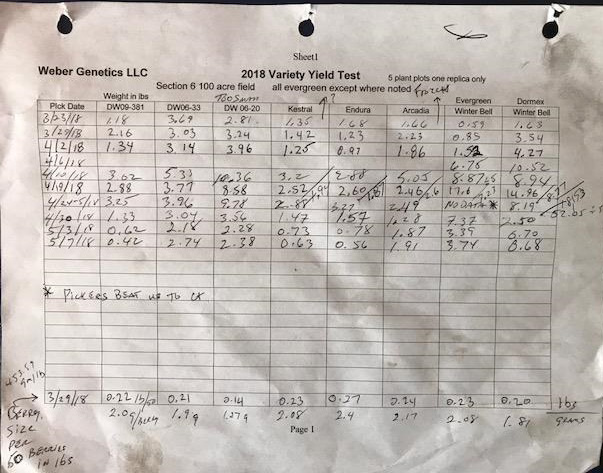 Sheet1
Weber Genetics LLC 2018 Variety Yield Test 5 plant plots one replica only
Section 6 100 acre field all evergreen except where noted
Weight in lbs ? Evergreen Dormex
Pick Date DW09-381 DW06-33 DW 06-20 Kestral Endura Arcadia Winter Bell Winter Bell
3/23/18 1.18 3.69 2.81 1.35 1.68 1.66 0.59 1.63
3/29/18 2.16 3.03 3.24 1.42 1.23 2.23 0.85 3.54
4/2/18 1.34 3.14 3.96 1.25 0.97 1.86 4.27
4/6/18 6.75 10.52
4/10/18 3.02 5.31 10.36 3.2 5.05
4/19/18 2.88 3.77 9.58 2.52 2.60 2.46 17.6 14.96
3.25 3.96 9.78 2.88 3.27 2.49 NO DATA * 8.19
4/30/18 1.33 3.04 3.56 1.47 1.57 1.28 7.37 2.50
5/3/18 0.62 2.18 2.28 0.73 0.78 1.87 3.39 6.70
5/7/18 0.42 2.74 2.38 0.63 0.56 1.91 3.74 6.68
* PICKERS BEAT US TO IT
453.59
gm/lb
3/29/18 0.22 0.21 0.14 0.23 0.27 0.24 0.23 0.20 lbs
BERRY 2.0 g/BERRY 1.9 g 1.27 g 2.08 2.4 2.17 2.08 1.81 grams
SIZE
PER
60 BERRIES
IN lbs
Page 1